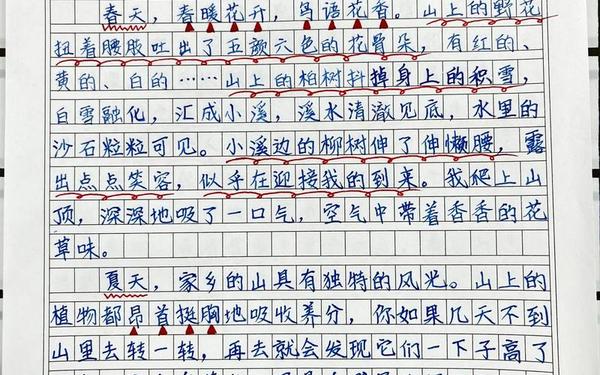 春天，春暖花开，鸟语花香。山上的野花
扭着腰肢吐出了五颜六色的花骨朵，有红的、
黄的、白的……山上的柏树抖掉身上的积雪，
白雪融化，汇成小溪，溪水清澈见底，水里的
沙石粒粒可见。小溪边的柳树伸了伸懒腰，露
出点点笑容，似乎在迎接我的到来。我爬上山
顶，深深地吸了一口气，空气中带着香香的花
草味。
夏天，家乡的山具有独特的风光。山上的
植物都昂首挺胸地吸收养分，你如果几天不到
山里去转一转，再去就会发现它们一下子高了